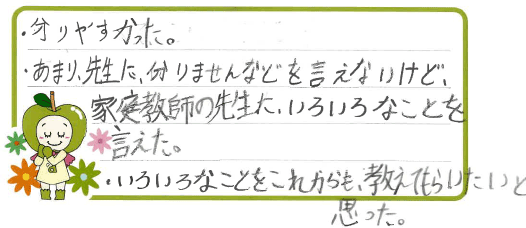 ・分りやすかった。
・あまり、先生に、分りませんなどを言えないけど、
家庭教師の先生に、いろいろなことを
言えた。
・いろいろなことをこれからも、教えてもらいたいと
思った。